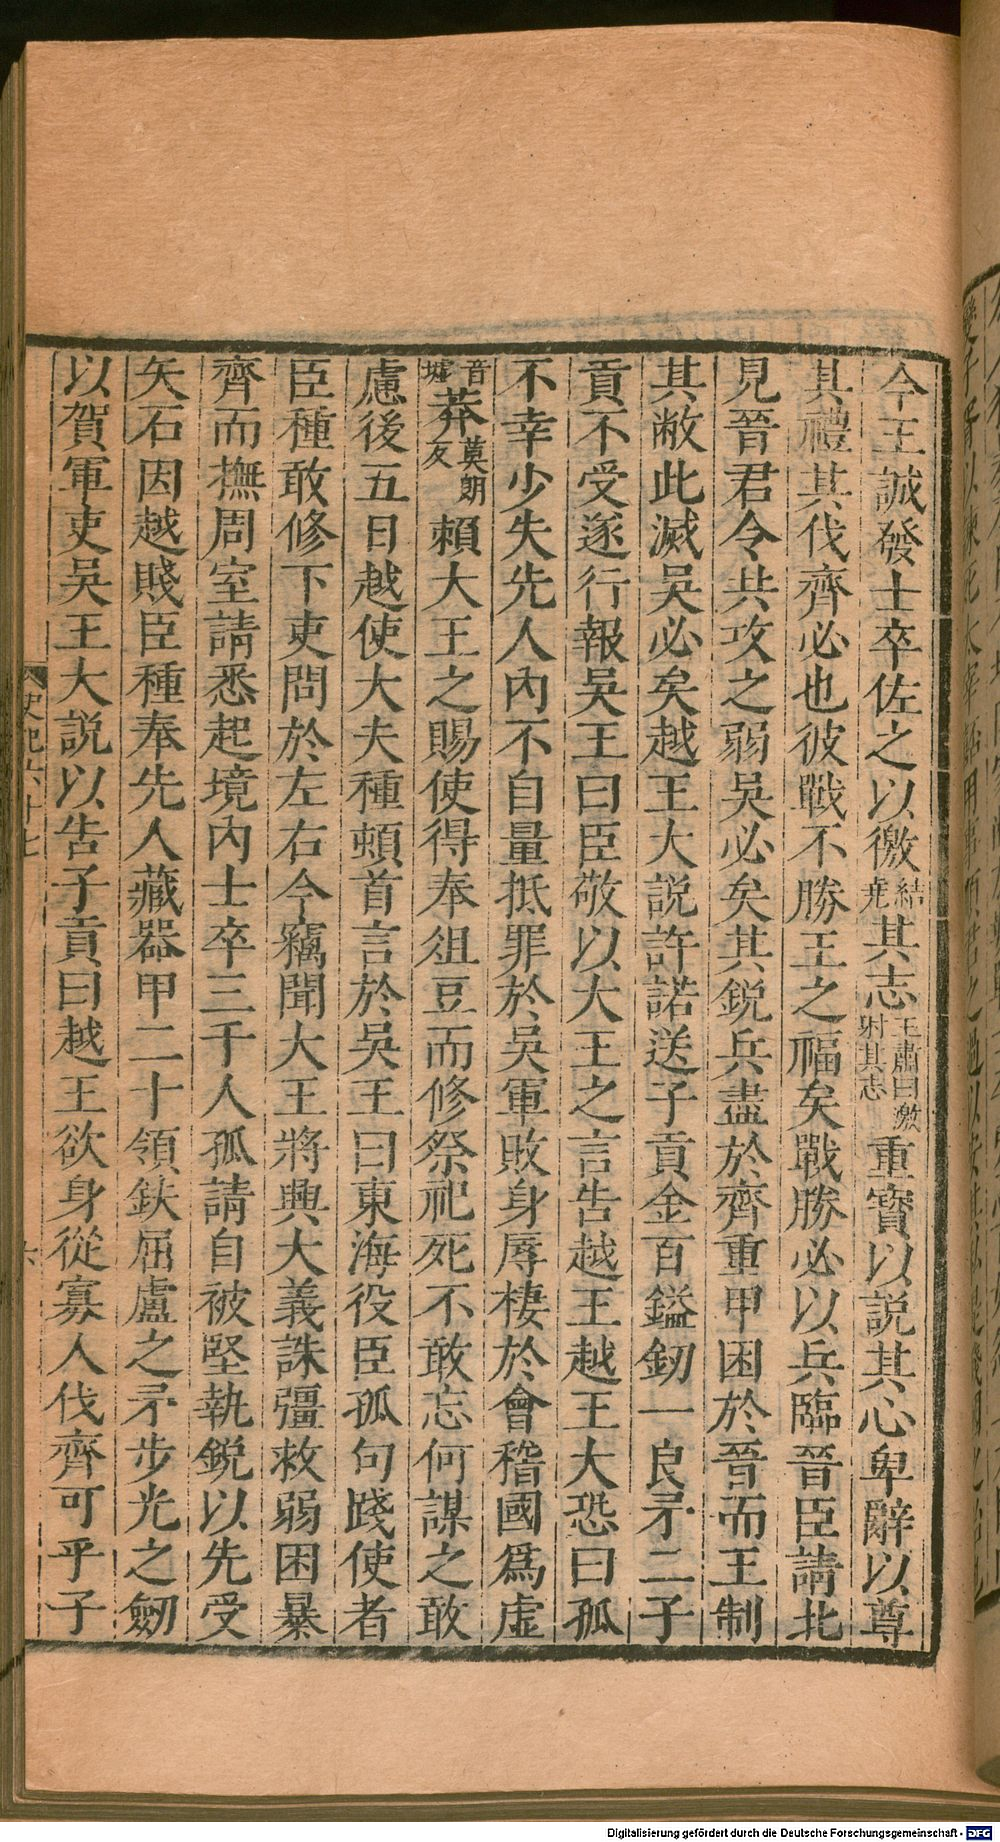 今王誠發士卒佐之以徼結堯其志王肅曰激射其志重寶以説其心卑辭以尊
其禮其伐齊必也彼戰不勝王之福矣戰勝必以兵臨晉臣請北
見晉君令共攻之弱吳必矣其銳兵盡於齊重甲困於晉而王制
其敝此滅吳必矣越王大説許諾送子貢金百鎰劒一良矛二子
貢不受遂行報吳王曰臣敬以大王之言告越王越王大恐曰孤
不幸少失先人內不自量抵罪於吳軍敗身辱棲於會稽國爲虚
音墟莽莫朗反賴大王之賜使得奉俎豆而修祭祀死不敢忘何謀之敢
慮後五日越使大夫種頓首言於吳王曰東海役臣孤句踐使者
臣種敢修下吏問於左右今竊聞大王將興大義誅彊救弱困暴
齊而撫周室請悉起境內士卒三千人孤請自被堅執銳以先受
矢石因越賤臣種奉先人藏器甲二十領鈇屈盧之矛步光之劒
以賀軍吏吳王大説以告子貢曰越王欲身從寡人伐齊可乎子
史記六十七 六
Digitalisierung gefördert durch die Deutsche Forschungsgemeinschaft - DFG